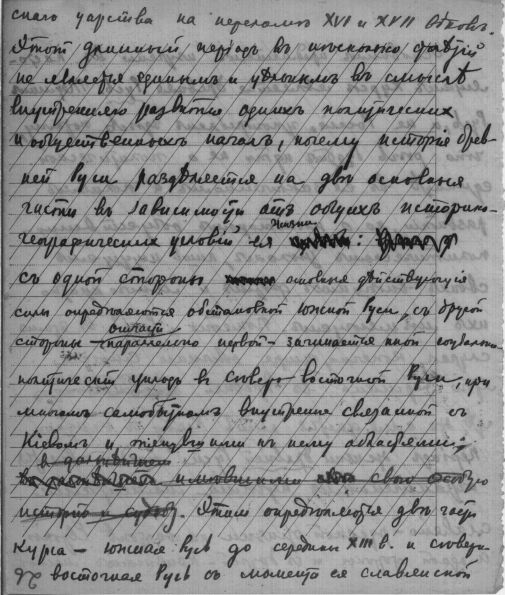 скаго царства на переломѣ XVI и XVII вѣковъ.
Этотъ длинный періодъ въ нѣсколько столѣтій
не является единымъ и цѣльнымъ въ смыслѣ
внутренняго развитія однихъ политическихъ
и общественныхъ началъ, почему исторія древ-
ней Руси раздѣляется на двѣ основныя
части въ зависимости отъ общихъ историко-
географическихъ условій ея жизни:
съ одной стороны основныя дѣйствующія
силы опредѣляются обстановкой южной Руси, съ другой
стороны отчасти параллельно первой – зачинается иной соціально-
политическій укладъ въ сѣверо восточной Руси, при
многомъ самобытномъ внутренне связанной съ
Кіевомъ и къ нему областями,
въ дальнѣйшемъ
имѣвшими свою особую
исторію и судьбу. Этимъ опредѣляются двѣ части
курса – южная Русь до середины XIII в. и сѣверо-
восточная Русь съ момента ея славянской